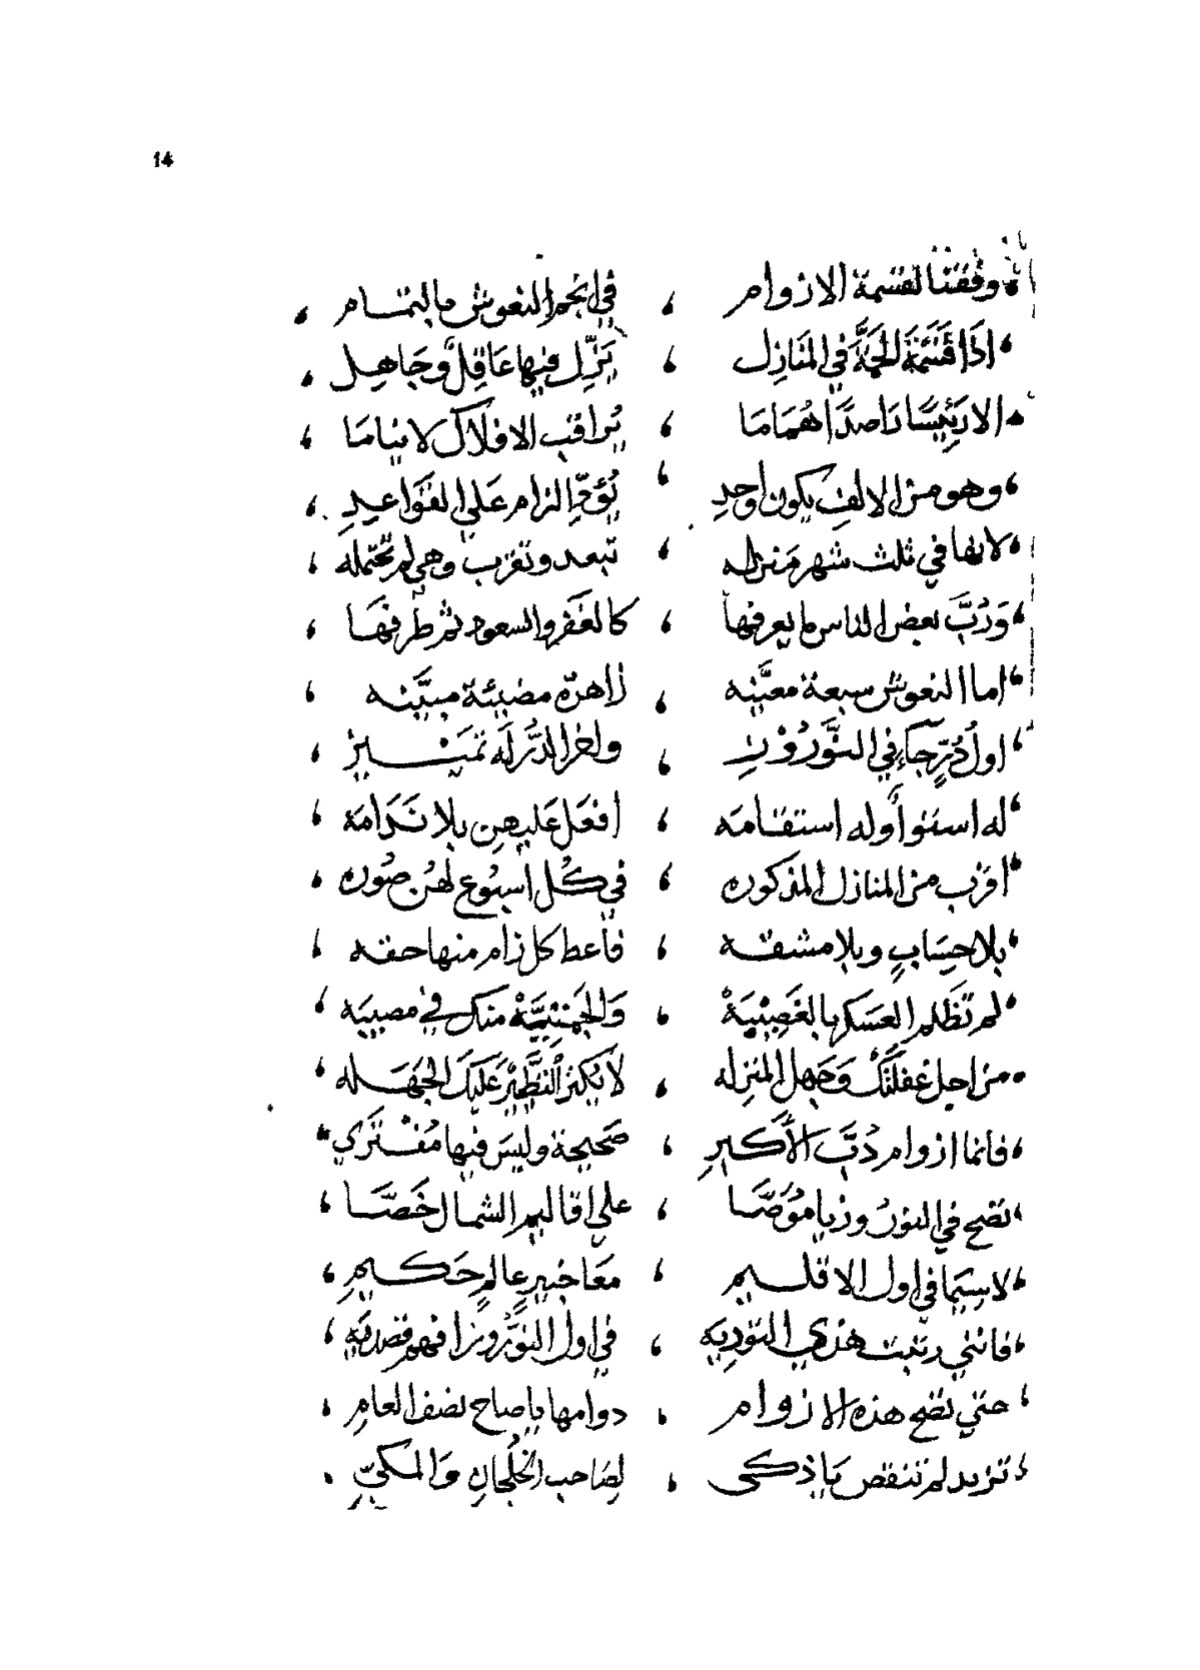 14
وفقنا لقسمة الازوام ، في انجم النعوش مالتمام ،
اذا قسمة الجمة في المنازل ، يزل فيها عاقل وجاهل ،
الا رئيسا راصدا هماما ، يراقب الافلاك لا نياما ،
وهو من الالف يكون واحد ، يؤخر الزام علي القواعد ،
لانها في ثلث شهر منزله ، تبعد وتقرب وهي لم تحتمله ،
ورب بعض الناس ما يعرفها ، كالغفر والسعود ثم طرفها ،
اما النعوش سبعة معينه ، زاهرة مضيئة مبينه ،
اول در جاء في النوروز ، واخر الدر له تمييز ،
له استوا وله استقامه ، افعل عليهن بلا ندامة ،
اقرب من المنازل المذكوره ، في كل اسبوع لهن صوره ،
بلا حساب وبلا مشقه ، فاعط كل زام منها حقه ،
لم تظلم العسكر بالغصيبة ، والجمة منك في مصيبه ،
من اجل غفلتك وجهل المنزله ، لا يكثر التظلم عليك الجهله ،
فانما ازوام دب الاكبر ، صحيحة وليس فيها مفتري
تضح في النوروز يا موصا ، علي اقاليم الشمال خصا ،
لا سيما في اول الاقليم ، معا خبير عالم حكيم ،
فانني رتبت هذي التورية ، في اول النوروز افهم قصديه ،
حتي تضح هذه الازوام ، دوامها يا صاح نصف العام ،
تزيد لم تنقص يا ذكى ، لصاحب الخلجان والمكي ،